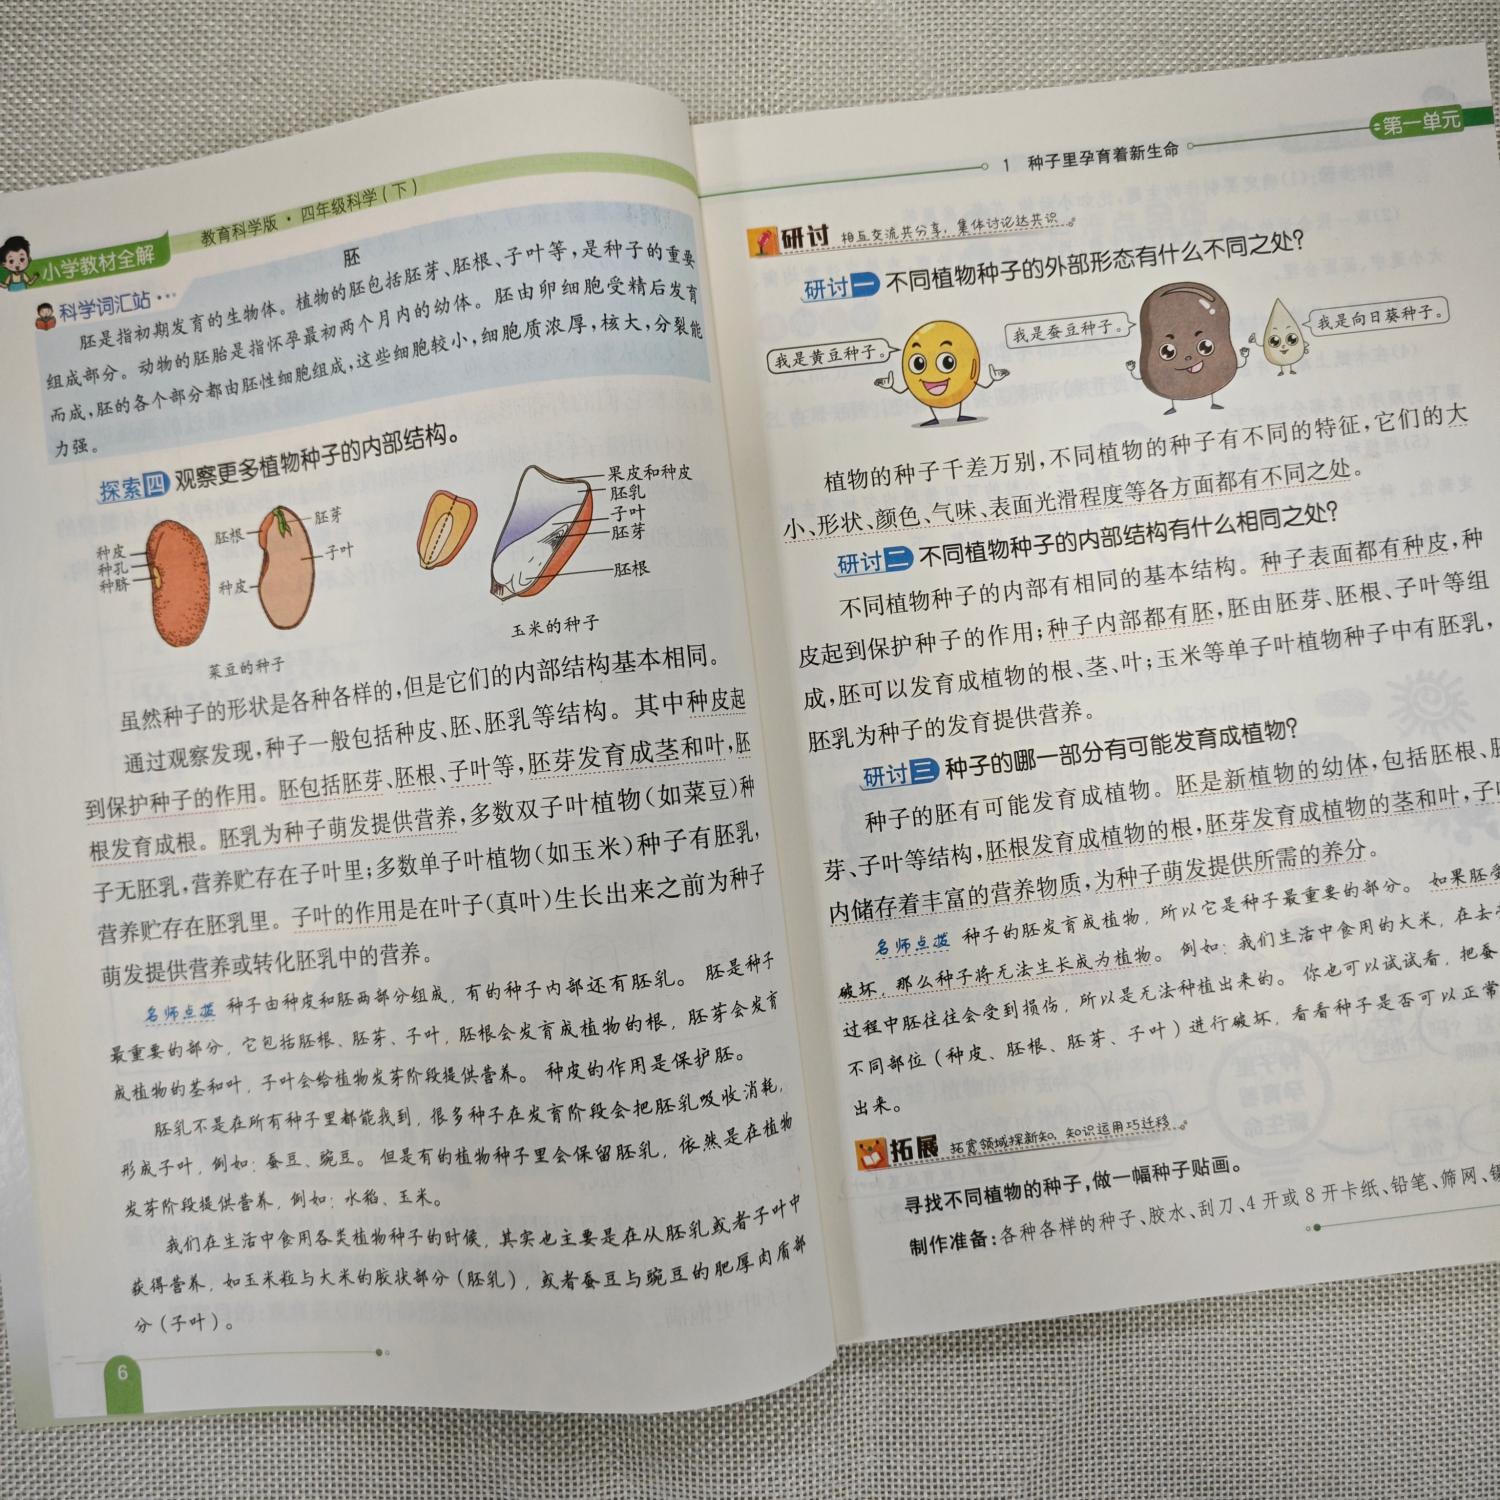 小学教材全解
教育科学版·四年级科学(下)
科学词汇站···
胚
胚是指初期发育的生物体。植物的胚包括胚芽、胚根、子叶等,是种子的重要
组成部分。动物的胚胎是指怀孕最初两个月内的幼体。胚由卵细胞受精后发育
而成,胚的各个部分都由胚性细胞组成,这些细胞较小,细胞质浓厚,核大,分裂能
力强。
探索四 观察更多植物种子的内部结构。
种皮
种孔
种脐
胚根
胚芽
子叶
种皮
菜豆的种子
果皮和种皮
胚乳
子叶
胚芽
胚根
玉米的种子
虽然种子的形状是各种各样的,但是它们的内部结构基本相同。
通过观察发现,种子一般包括种皮、胚、胚乳等结构。其中种皮起
到保护种子的作用。胚包括胚芽、胚根、子叶等,胚芽发育成茎和叶,胚
根发育成根。胚乳为种子萌发提供营养,多数双子叶植物(如菜豆)种
子无胚乳,营养贮存在子叶里;多数单子叶植物(如玉米)种子有胚乳,
营养贮存在胚乳里。子叶的作用是在叶子(真叶)生长出来之前为种子
萌发提供营养或转化胚乳中的营养。
名师点拨 种子由种皮和胚两部分组成,有的种子内部还有胚乳。胚是种子
最重要的部分,它包括胚根、胚芽、子叶,胚根会发育成植物的根,胚芽会发育
成植物的茎和叶,子叶会给植物发芽阶段提供营养。种皮的作用是保护胚。
胚乳不是在所有种子里都能找到,很多种子在发育阶段会把胚乳吸收消耗,
形成子叶,例如:蚕豆、豌豆。但是有的植物种子里会保留胚乳,依然是在植物
发芽阶段提供营养,例如:水稻、玉米。
我们在生活中食用各类植物种子的时候,其实也主要是在从胚乳或者子叶中
获得营养,如玉米粒与大米的胶状部分(胚乳),或者蚕豆与豌豆的肥厚肉质部
分(子叶)。
6
1 种子里孕育着新生命
第一单元
研讨 相互交流共分享,集体讨论达共识
研讨一 不同植物种子的外部形态有什么不同之处?
我是黄豆种子。
我是蚕豆种子。
我是向日葵种子。
植物的种子千差万别,不同植物的种子有不同的特征,它们的大
小、形状、颜色、气味、表面光滑程度等各方面都有不同之处。
研讨二 不同植物种子的内部结构有什么相同之处?
不同植物种子的内部有相同的基本结构。种子表面都有种皮,种
皮起到保护种子的作用;种子内部都有胚,胚由胚芽、胚根、子叶等组
成,胚可以发育成植物的根、茎、叶;玉米等单子叶植物种子中有胚乳,
胚乳为种子的发育提供营养。
研讨三 种子的哪一部分有可能发育成植物?
种子的胚有可能发育成植物。胚是新植物的幼体,包括胚根、胚
芽、子叶等结构,胚根发育成植物的根,胚芽发育成植物的茎和叶,子叶
内储存着丰富的营养物质,为种子萌发提供所需的养分。
名师点拨 种子的胚发育成植物,所以它是种子最重要的部分。如果胚受
破坏,那么种子将无法生长成为植物。例如:我们生活中食用的大米,在去
过程中胚往往会受到损伤,所以是无法种植出来的。你也可以试试看,把蚕
不同部位(种皮、胚根、胚芽、子叶)进行破坏,看看种子是否可以正常
出来。
拓展 拓宽领域探新知,知识运用巧迁移
寻找不同植物的种子,做一幅种子贴画。
制作准备:各种各样的种子、胶水、刮刀、4开或8开卡纸、铅笔、筛网、